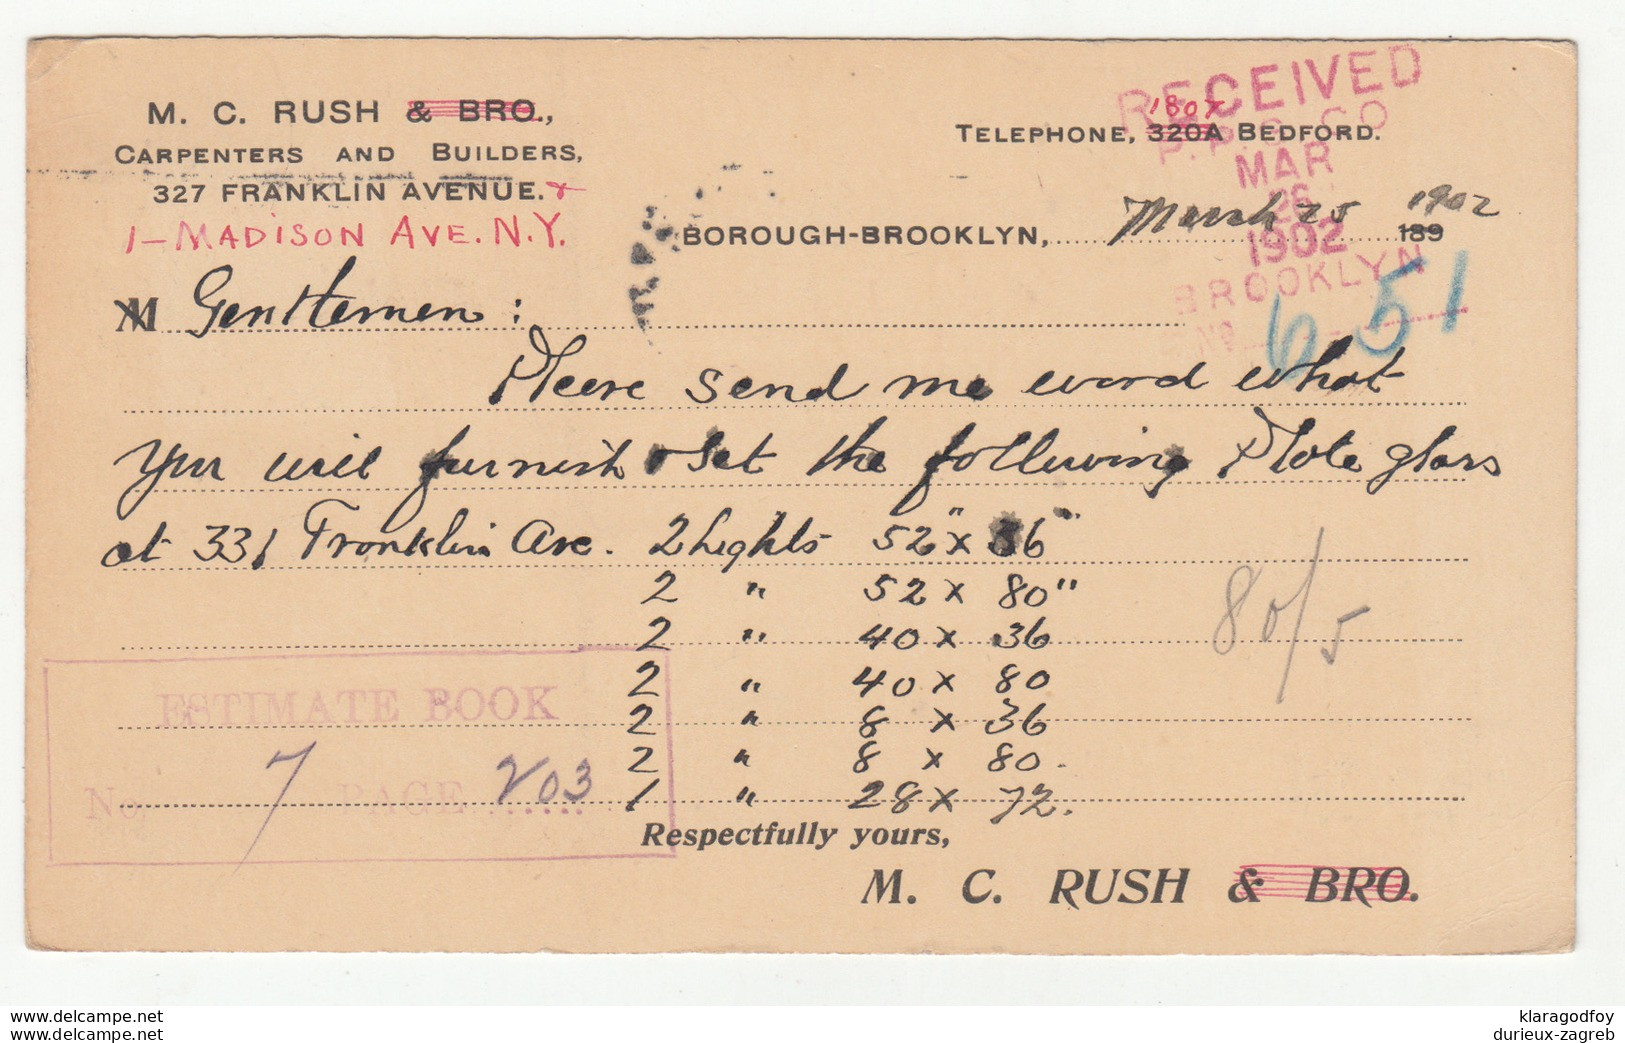 M. C. RUSH & BRO.,
CARPENTERS AND BUILDERS,
327 FRANKLIN AVENUE. &
1 - MADISON AVE. N.Y.
RECEIVED
P.P.G. CO
MAR
26
1902
BROOKLYN
No 651
180 x
TELEPHONE, 320A BEDFORD.
BOROUGH-BROOKLYN, March 25 1902
189
M Gentlemen :
Please send me word what
you will furnish & set the following Plate glass
at 331 Franklin Ave. 2 Lights 52" x 36"
2 " 52 x 80"
2 " 40 x 36
2 " 40 x 80
2 " 8 x 36
2 " 8 x 80.
1 " 28 x 72.
80/5
ESTIMATE BOOK
No. 7 PAGE 203
Respectfully yours,
M. C. RUSH & BRO.
www.delcampe.net
www.delcampe.net
klaragodfoy
durieux-zagreb